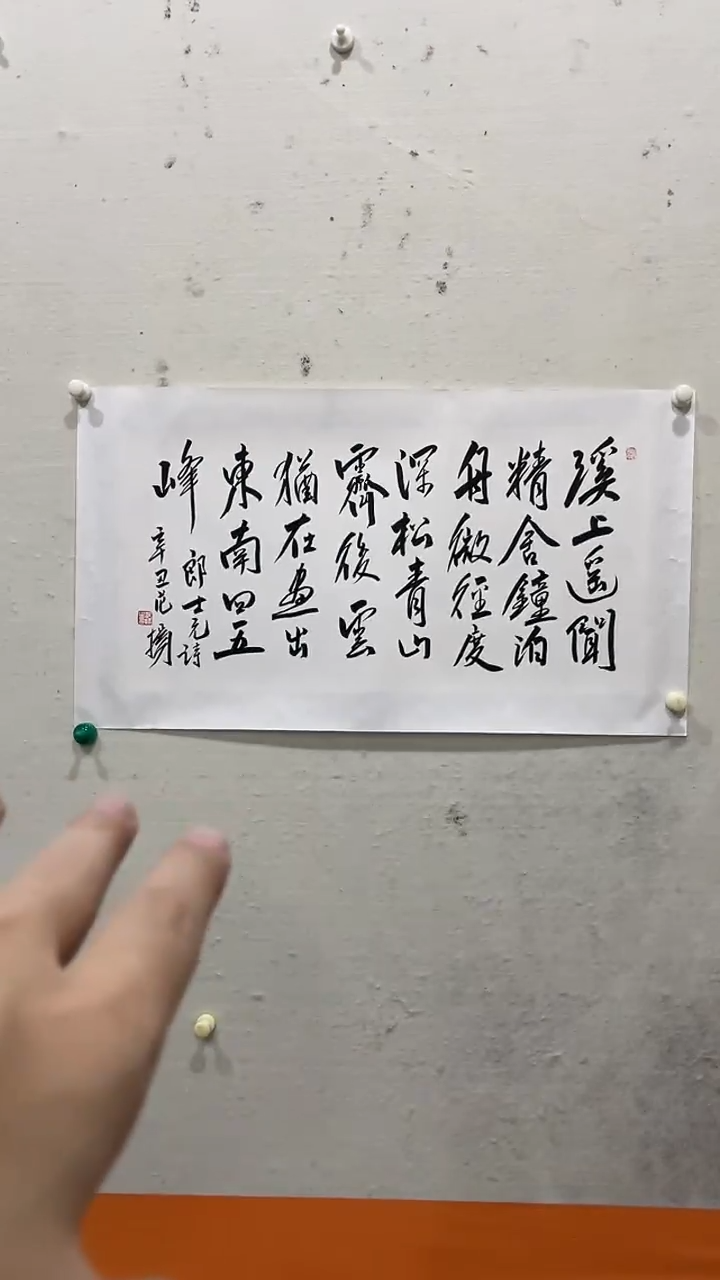 溪上遥聞
精舍鐘泊
舟微徑度
深松青山
霽後雲
猶在畫出
東南四五
峰
郎士元詩
辛丑范揚